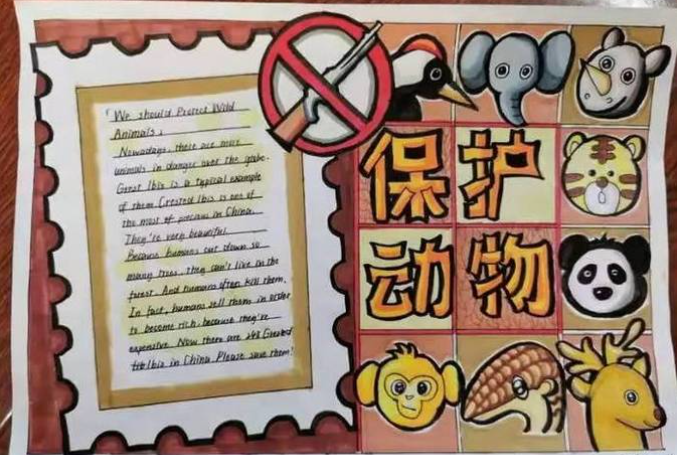 "We should Protect Wild
Animals.
Nowadays, there are more
animals in danger over the globe.
Great Ibis is a typical example
of them. Crested Ibis is one of
the most of precious in China.
They're very beautiful.
Because humans cut down so
many trees, they can't live in the
forest. And humans often kill them.
In fact, humans sell them in order
to become rich, because they're
expensive. Now there are Crested
Ibis in China. Please save them!
保护
动物